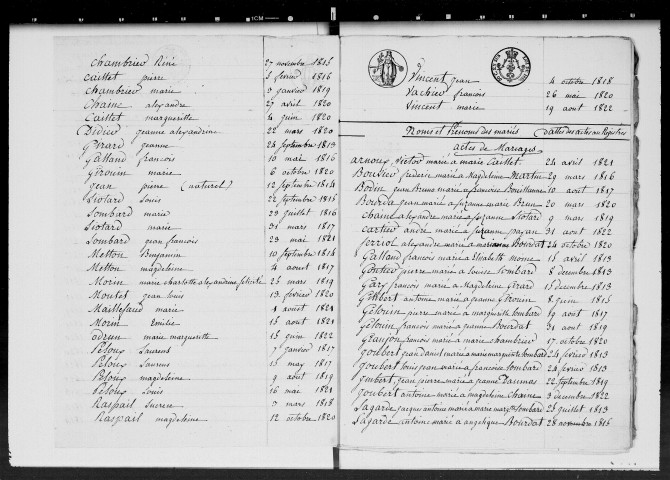 chambrier Réné 27 novembre 1815
Caillet pierre 5 fevrier 1816
chambrier marie 3 janvier 1819
Chaine alexandre 27 avril 1820
Caillet marguerite 4 juin 1820
Didier jeanne alexandrine 22 mars 1820
Gerard jeanne 24 septembre 1813
Galland francois 10 mai 1816
Gerouin marie 6 octobre 1820
jean pierre (naturel) 12 septembre 1814
Liotard Louis 22 septembre 1815
Lombard marie 23 juillet 1816
Liotard marie 31 mars 1817
Lombard jean francois 23 mai 1821
Metton Benjamin 10 septembre 1816
Metton magdeleine 4 aout 1817
Morin marie charlotte alexandrine felicité 25 mars 1819
Moutet jean Louis 13 fevrier 1820
Maillefaud marie 1 aout 1821
Morin Emilie 15 aout 1821
marie marguerite 15 juin 1822
Peloux Laurens 7 janvier 1817
Peloux Laurens 15 may 1817
Peloux magdeleine 9 aout 1819
Peloux Louis 16 mai 1821
Raspail 3 mars 1818
Raspail magdeleine 12 octobre 1820
Vincent jean 4 octobre 1818
Vachier francois 26 mai 1820
Vincent marie 19 aout 1822
Noms et Prenoms des mariés Dattes des actes au Registres
actes de Mariages
arnoux victor marié à marie Caillet 24 avril 1821
Bouvier frederic marié à Magdeleine Martin 29 mars 1816
Bodin jean Bruno marié à francoise Bouillanne 10 aout 1817
Bourda jean marié à suzanne Brun 20 mars 1820
Chaine alexandre marié à suzanne Liotard 9 mars 1819
Cartier andré marié à suzanne payan 31 aout 1822
ferriol alexandre marié à marianne Bourdat 24 octobre 1820
Galland francois marié à Elisabeth moine 15 avril 1813
Gontier pierre marié à Louise Lombard 8 decembre 1813
Gary francois marié à Magdeleine Girard 15 decembre 1813
Guibert antoine marié à jeanne Gerouin 8 juin 1815
Gelouin pierre marié à marguerite Lombard 19 aout 1817
Gelouin francois marié à jeanne Bourdat 31 aout 1819
Granjon francois marié à marie chambrier 17 octobre 1820
joubert jean daniel marié à marie marguerite Lombard 24 fevrier 1813
joubert Louis jean marié à francoise Lombard 24 fevrier 1813
imbert jean pierre marié à jeanne Daumas 22 septembre 1819
joubert antoine marié à magdeleine Chaine 3 decembre 1822
Lagarde jacque antoine marié à marie margte Lombard 25 juillet 1813
Lagarde antoine marié à angelique Bourdat 28 novembre 1815